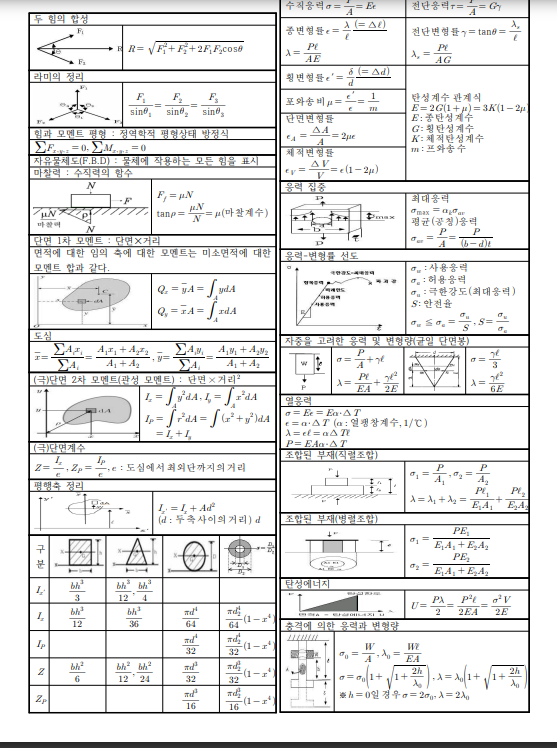 두 힘의 합성
F₁
R
F₂
R = √(F₁² + F₂² + 2F₁F₂cosθ)
라미의 정리
F₁/sinθ₁ = F₂/sinθ₂ = F₃/sinθ₃
힘과 모멘트 평형 : 정역학적 평형상태 방정식
∑Fx·y·z = 0, ∑Mx·y·z = 0
자유물체도(F.B.D) : 물체에 작용하는 모든 힘을 표시
마찰력 : 수직력의 함수
N
F
μN
마찰력
ρ
N
F_f = μN
tanρ = μN/N = μ(마찰계수)
단면 1차 모멘트 : 단면×거리
면적에 대한 임의 축에 대한 모멘트는 미소면적에 대한
모멘트 합과 같다.
Qx = ȳA = ∫A ydA
Qy = x̄A = ∫A xdA
도심
x̄ = ∑Aᵢxᵢ/∑Aᵢ = (A₁x₁ + A₂x₂)/(A₁ + A₂), ȳ = ∑Aᵢyᵢ/∑Aᵢ = (A₁y₁ + A₂y₂)/(A₁ + A₂)
(극)단면 2차 모멘트(관성 모멘트) : 단면×거리²
Ix = ∫A y²dA, Iy = ∫A x²dA
IP = ∫A r²dA = ∫A (x² + y²)dA
= Ix + Iy
(극)단면계수
Z = Ix/e, ZP = IP/e, e : 도심에서 최외단까지의 거리
평행축 정리
Ix' = Ix + Ad²
(d : 두 축 사이의 거리) d
구분
Ix' bh³/3 bh³/12, bh³/4
Ix bh³/12 bh³/36 πd⁴/64 πd₂⁴/64(1−x⁴)
IP πd⁴/32 πd₂⁴/32(1−x⁴)
Z bh²/6 bh²/12, bh²/24 πd³/32 πd₂³/32(1−x⁴)
ZP πd³/16 πd₂³/16(1−x⁴)
수직응력 σ = P/A = Eε
전단응력 τ = P/A = Gγ
종변형률 ε = λ/ℓ (= △ℓ)
λ = Pℓ/AE
전단변형률 γ = tanθ = λs/ℓ
λs = Pℓ/AG
횡변형률 ε′ = δ/d (= △d)
포와송비 μ = ε′/ε = 1/m
단면변형률
εA = △A/A = 2με
체적변형률
εV = △V/V = ε(1−2μ)
탄성계수 관계식
E = 2G(1+μ) = 3K(1−2μ)
E : 종탄성계수
G : 횡탄성계수
K : 체적탄성계수
m : 포와송 수
응력 집중
최대응력
σmax = αkσav
평균(공칭)응력
σav = P/A = P/(b−d)t
응력-변형률 선도
σw : 사용응력
σa : 허용응력
σu : 극한강도(최대응력)
S : 안전율
σw ≦ σa = σu/S, S = σu/σa
자중을 고려한 응력 및 변형량(균일 단면봉)
W
σ = P/A + γℓ
λ = Pℓ/EA + γℓ²/2E
σ = γℓ/3
λ = γℓ²/6E
열응력
σ = Eε = Eα·△T
ε = α·△T (α : 열팽창계수, 1/℃)
λ = εℓ = α△Tℓ
P = EAα·△T
조합된 부재(직렬조합)
σ₁ = P/A₁, σ₂ = P/A₂
λ = λ₁ + λ₂ = Pℓ₁/E₁A₁ + Pℓ₂/E₂A₂
조합된 부재(병렬조합)
σ₁ = PE₁/(E₁A₁ + E₂A₂)
σ₂ = PE₂/(E₁A₁ + E₂A₂)
탄성에너지
U = Pλ/2 = P²ℓ/2EA = σ²V/2E
충격에 의한 응력과 변형량
σ₀ = W/A, λ₀ = Wℓ/EA
σ = σ₀(1 + √(1 + 2h/λ₀)), λ = λ₀(1 + √(1 + 2h/λ₀))
※ h = 0일 경우 σ = 2σ₀, λ = 2λ₀